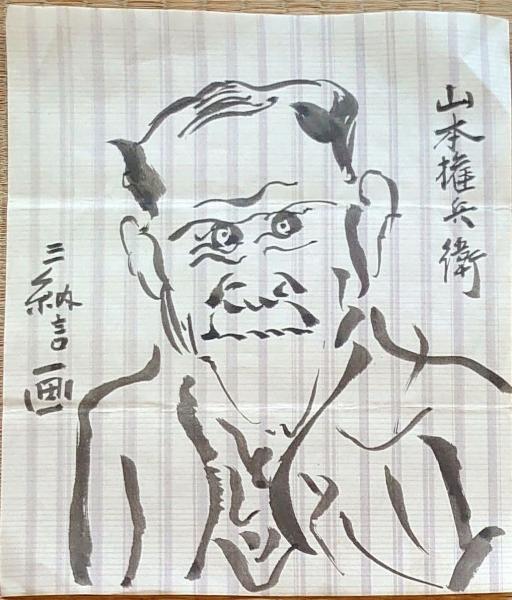 山本権兵衛
三納言画